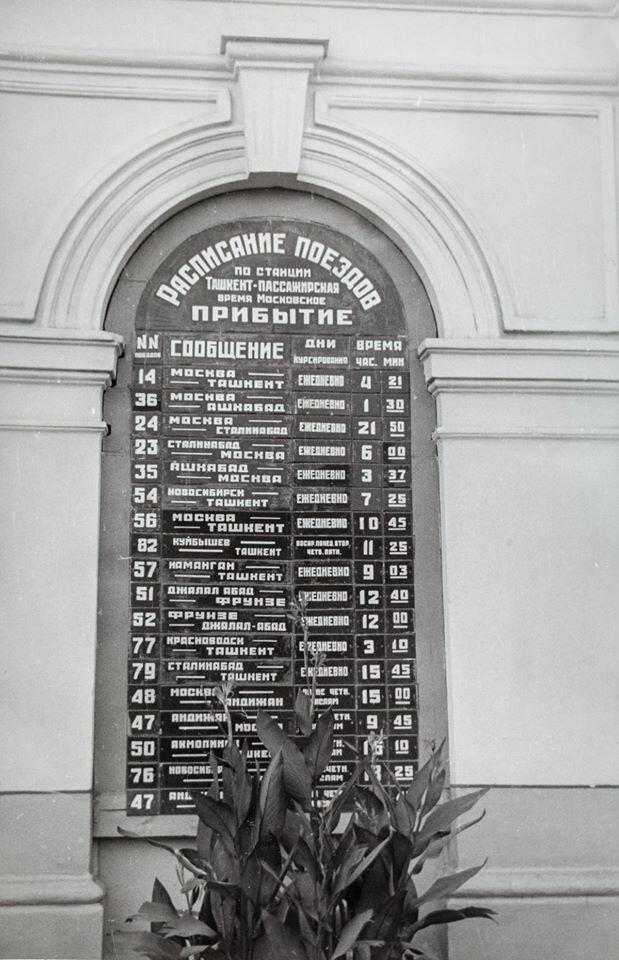 РАСПИСАНИЕ ПОЕЗДОВ
ПО СТАНЦИИ
ТАШКЕНТ-ПАССАЖИРСКАЯ
ВРЕМЯ МОСКОВСКОЕ
ПРИБЫТИЕ
NN ПОЕЗДОВ СООБЩЕНИЕ ДНИ КУРСИРОВАНИЯ ВРЕМЯ ЧАС. МИН
14 МОСКВА — ТАШКЕНТ ЕЖЕДНЕВНО 4 21
36 МОСКВА — АШХАБАД ЕЖЕДНЕВНО 1 30
24 МОСКВА — СТАЛИНАБАД ЕЖЕДНЕВНО 21 50
23 СТАЛИНАБАД — МОСКВА ЕЖЕДНЕВНО 6 00
35 АШХАБАД — МОСКВА ЕЖЕДНЕВНО 3 37
54 НОВОСИБИРСК — ТАШКЕНТ ЕЖЕДНЕВНО 7 25
56 МОСКВА — ТАШКЕНТ ЕЖЕДНЕВНО 10 45
82 КУЙБЫШЕВ — ТАШКЕНТ ВОСКР. ПОНЕД. ВТОР. ЧЕТВ. ПЯТН. 11 25
57 НАМАНГАН — ТАШКЕНТ ЕЖЕДНЕВНО 9 03
51 ДЖАЛАЛ АБАД — ФРУНЗЕ ЕЖЕДНЕВНО 12 40
52 ФРУНЗЕ — ДЖАЛАЛ-АБАД ЕЖЕДНЕВНО 12 00
77 КРАСНОВОДСК — ТАШКЕНТ ЕЖЕДНЕВНО 3 10
79 СТАЛИНАБАД — ТАШКЕНТ ЕЖЕДНЕВНО 15 45
48 МОСКВА — АНДИЖАН ЧЕТН. 15 00
47 АНДИЖАН ЧЕТН. 9 45
50 АКМОЛИН 10
76 НОВОСИБ ЧЕТН. 25
47